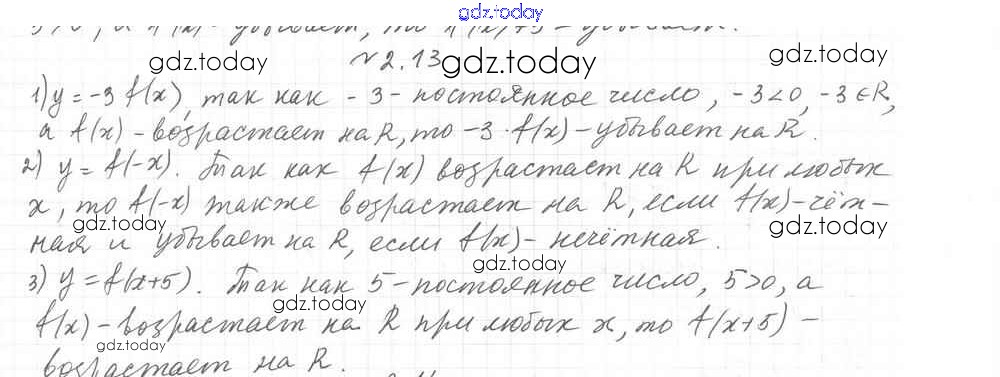 gdz.today
№2.13 gdz.today gdz.today gdz.today
1) y = -3 f(x), так как -3 - постоянное число, -3<0, -3∈R,
а f(x) - возрастает на R, то -3·f(x) - убывает на R.
2) y = f(-x). Так как f(x) возрастает на R при любых
x, то f(-x) также возрастает на R, если f(x) - чёт-
gdz.today gdz.today
ная и убывает на R, если f(x) - нечётная.
gdz.today
3) y = f(x+5). Так как 5 - постоянное число, 5>0, а
gdz.today
f(x) - возрастает на R при любых x, то f(x+5) -
gdz.today
возрастает на R.